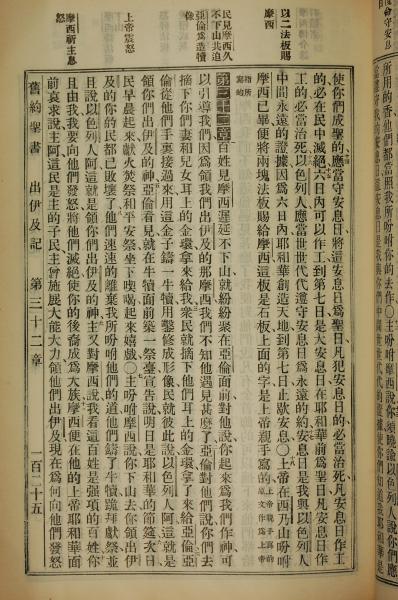 以二法板賜
摩西
民見摩西久
不下山共迫
亞倫爲造犢
像
上帝震怒
摩西祈主息
怒
使你們成聖的應當守安息日將這安息日爲聖日凡犯安息日的必當治死凡安息日作工
的必在民中滅絕六日內可以作工到第七日是大安息日在耶和華前爲聖日凡安息日作
工的必當治死以色列人應當世世代代遵守安息日爲永遠的約安息日是我與以色列人
中間永遠的證據因爲六日內耶和華創造天地到第七日止歇安息○上帝在西乃山吩咐
摩西已畢便將兩塊法板賜給摩西這板是石板上面的字是上帝親手寫的
第三十二章百姓見摩西遲延不下山就紛紛聚在亞倫面前對他說你起來爲我們作神可
以引導我們因爲領我們出伊及的那摩西我們不知他遇見甚麼了亞倫對他們說你們去
摘下你們妻和兒女耳上的金環拿來給我衆民就摘下他們耳上的金環拿了來給亞倫亞
倫從他們手裏接過來用這金子鑄一牛犢用鑿修成形像民就彼此說以色列人阿這就是
領你們出伊及的神亞倫看見就在牛犢面前築一祭臺宣告說明日是耶和華的節筵次日
民早晨起來獻火焚祭和平安祭坐下喫喝起來嬉戲○主吩咐摩西說你下山去你領出伊
及的你的民都已敗壞了他們速速的離棄我所吩咐他們的道他們鑄了牛犢跪拜獻祭並
且說以色列人阿這就是領你們出伊及的神主又對摩西說我看這百姓是强項的百姓你
且由我我要向他們發怒將他們滅絕使你的後裔成爲大族摩西便在他的上帝耶和華面
前哀求說主阿這民是主的子民主曾施展大能大力領他們出伊及現在爲何向他們發怒
舊約聖書 出伊及記 第三十二章 一百二十五